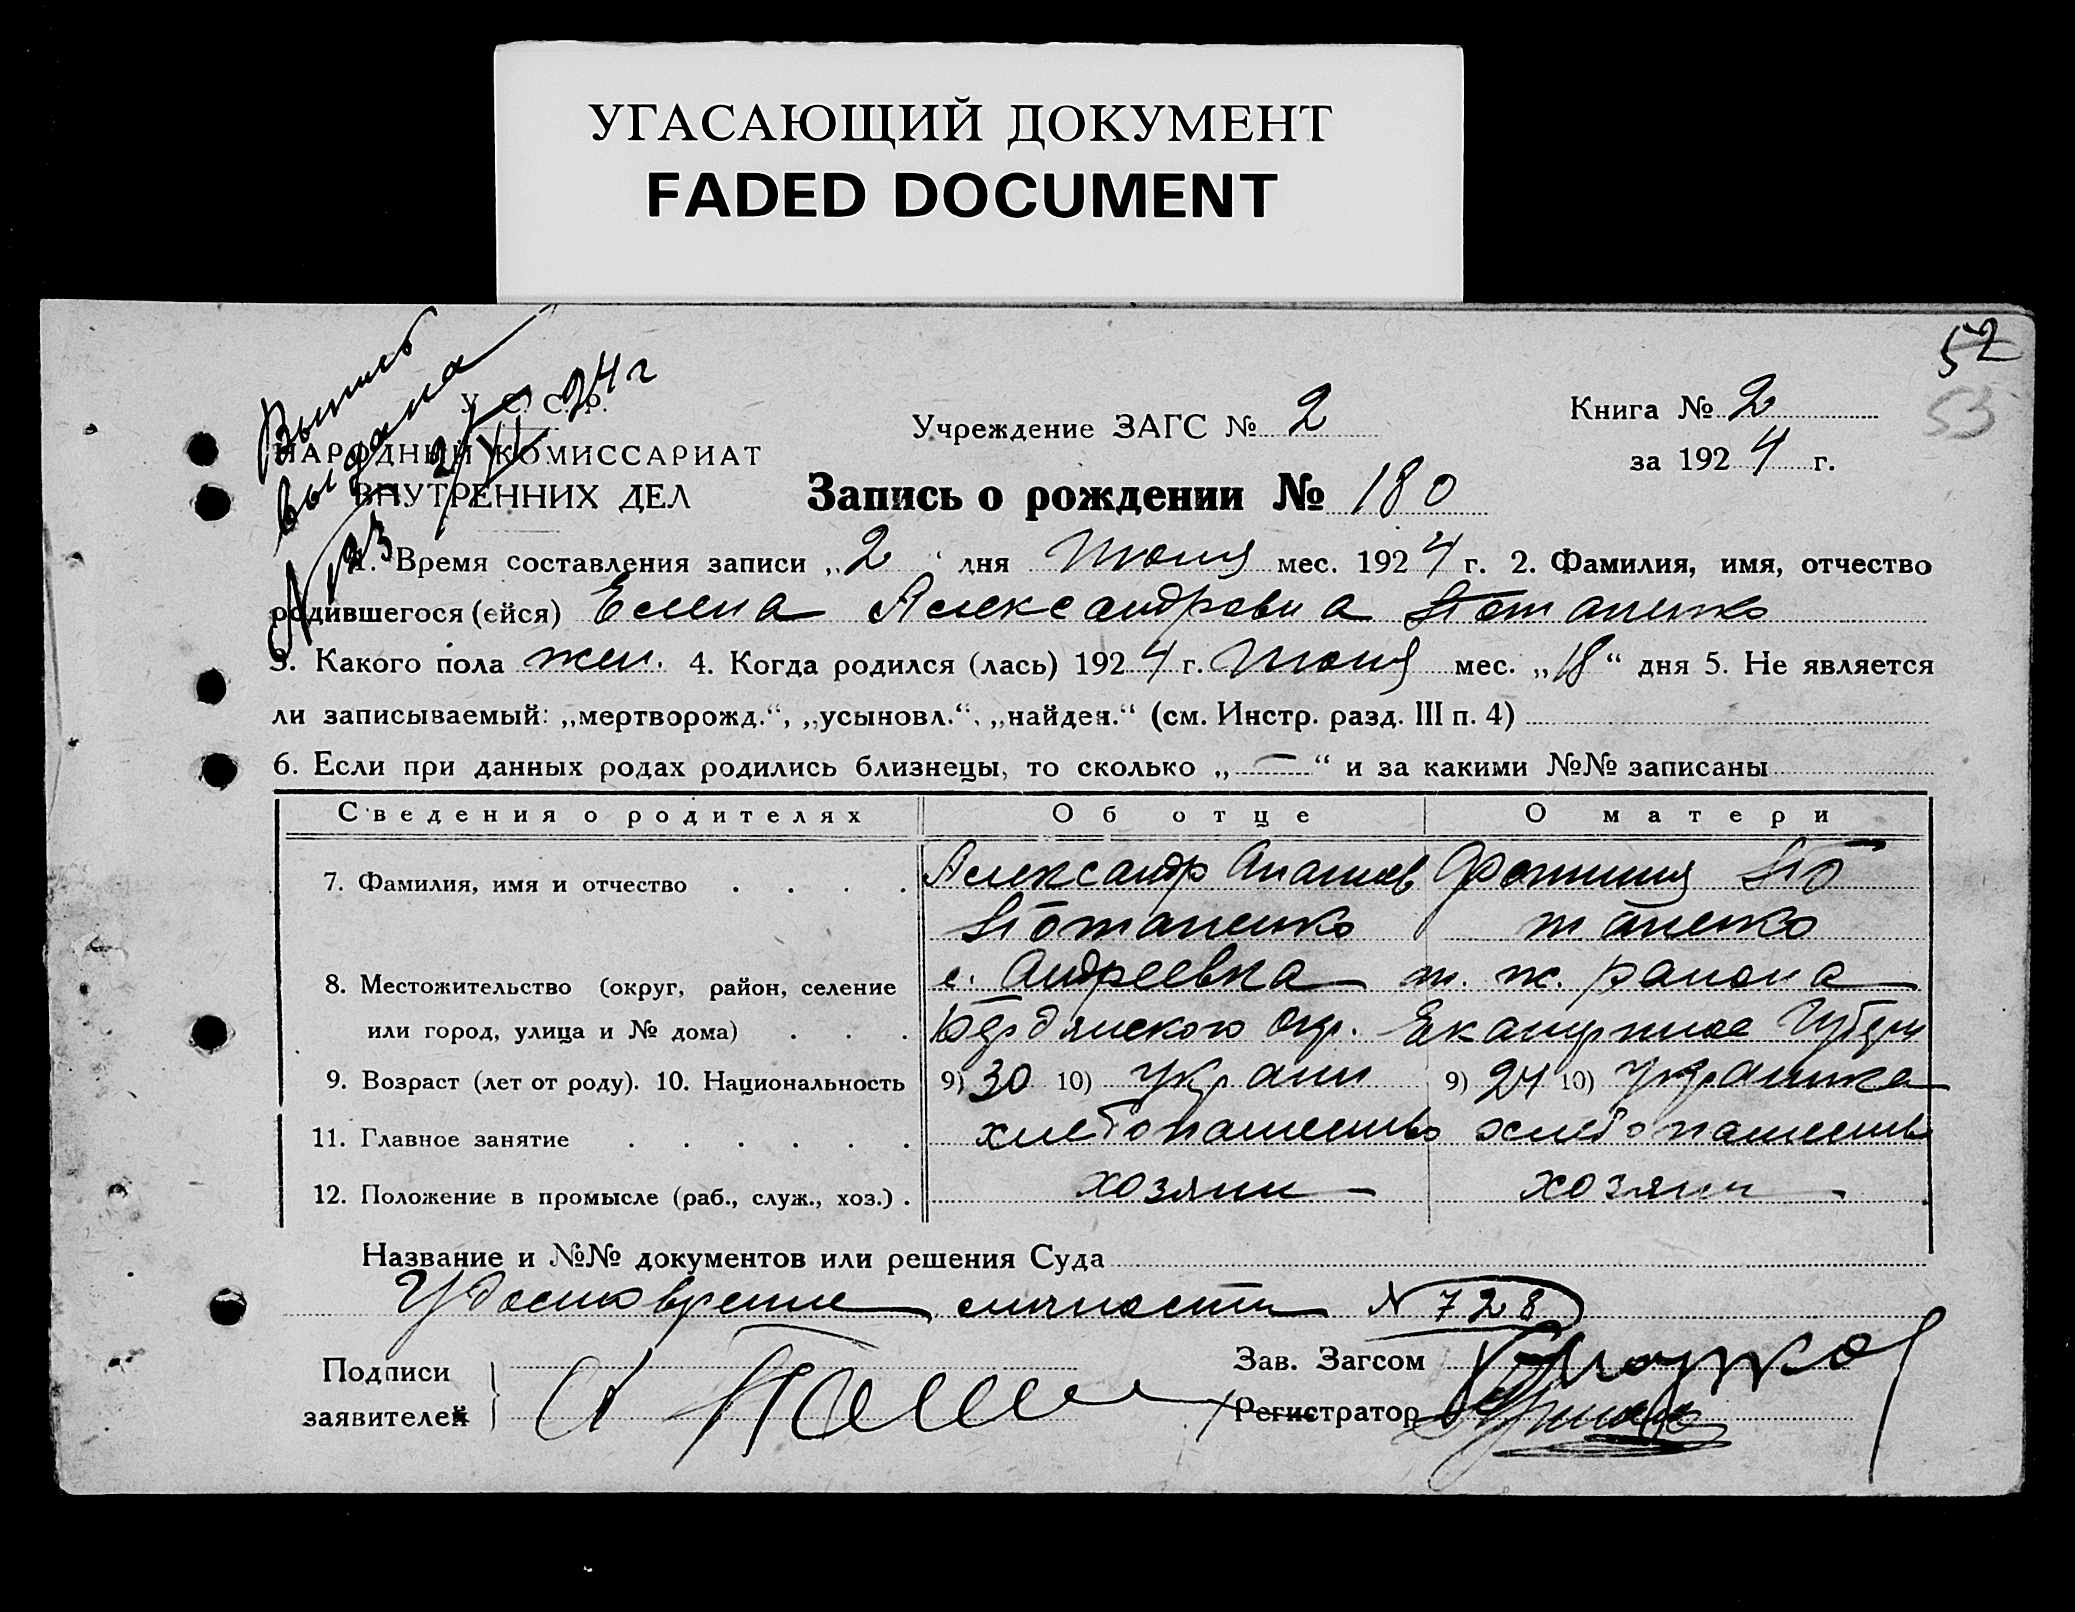 УГАСАЮЩИЙ ДОКУМЕНТ
FADED DOCUMENT
52
53
Выпись
выдана
2/VI 24 г
N 123
У. С. С. Р.
НАРОДНЫЙ КОМИССАРИАТ
ВНУТРЕННИХ ДЕЛ
Учреждение ЗАГС № 2
Книга № 2
за 1924 г.
Запись о рождении № 180
1. Время составления записи „2 дня Июня мес. 1924 г. 2. Фамилия, имя, отчество
родившегося (ейся) Елена Александровна Потапенко
3. Какого пола жен. 4. Когда родился (лась) 1924 г. Июня мес. „18“ дня 5. Не является
ли записываемый: „мертворожд.“, „усыновл.“, „найден.“ (см. Инстр. разд. III п. 4)
6. Если при данных родах родились близнецы, то сколько „—“ и за какими №№ записаны
Сведения о родителях Об отце О матери
7. Фамилия, имя и отчество Александр Ананиев Фотиния По
Потапенко тапенко
8. Местожительство (округ, район, селение с. Андреевка т. ж. района
или город, улица и № дома) Бердянского Окр. Губерн
9. Возраст (лет от роду). 10. Национальность 9) 30 10) Украин 9) 24 10) Украинка
11. Главное занятие хлебопашество хлебопашество
12. Положение в промысле (раб., служ., хоз.) хозяин хозяин
Название и №№ документов или решения Суда
Удостоверение личности N 728
Подписи
заявителей
Зав. Загсом
Регистратор